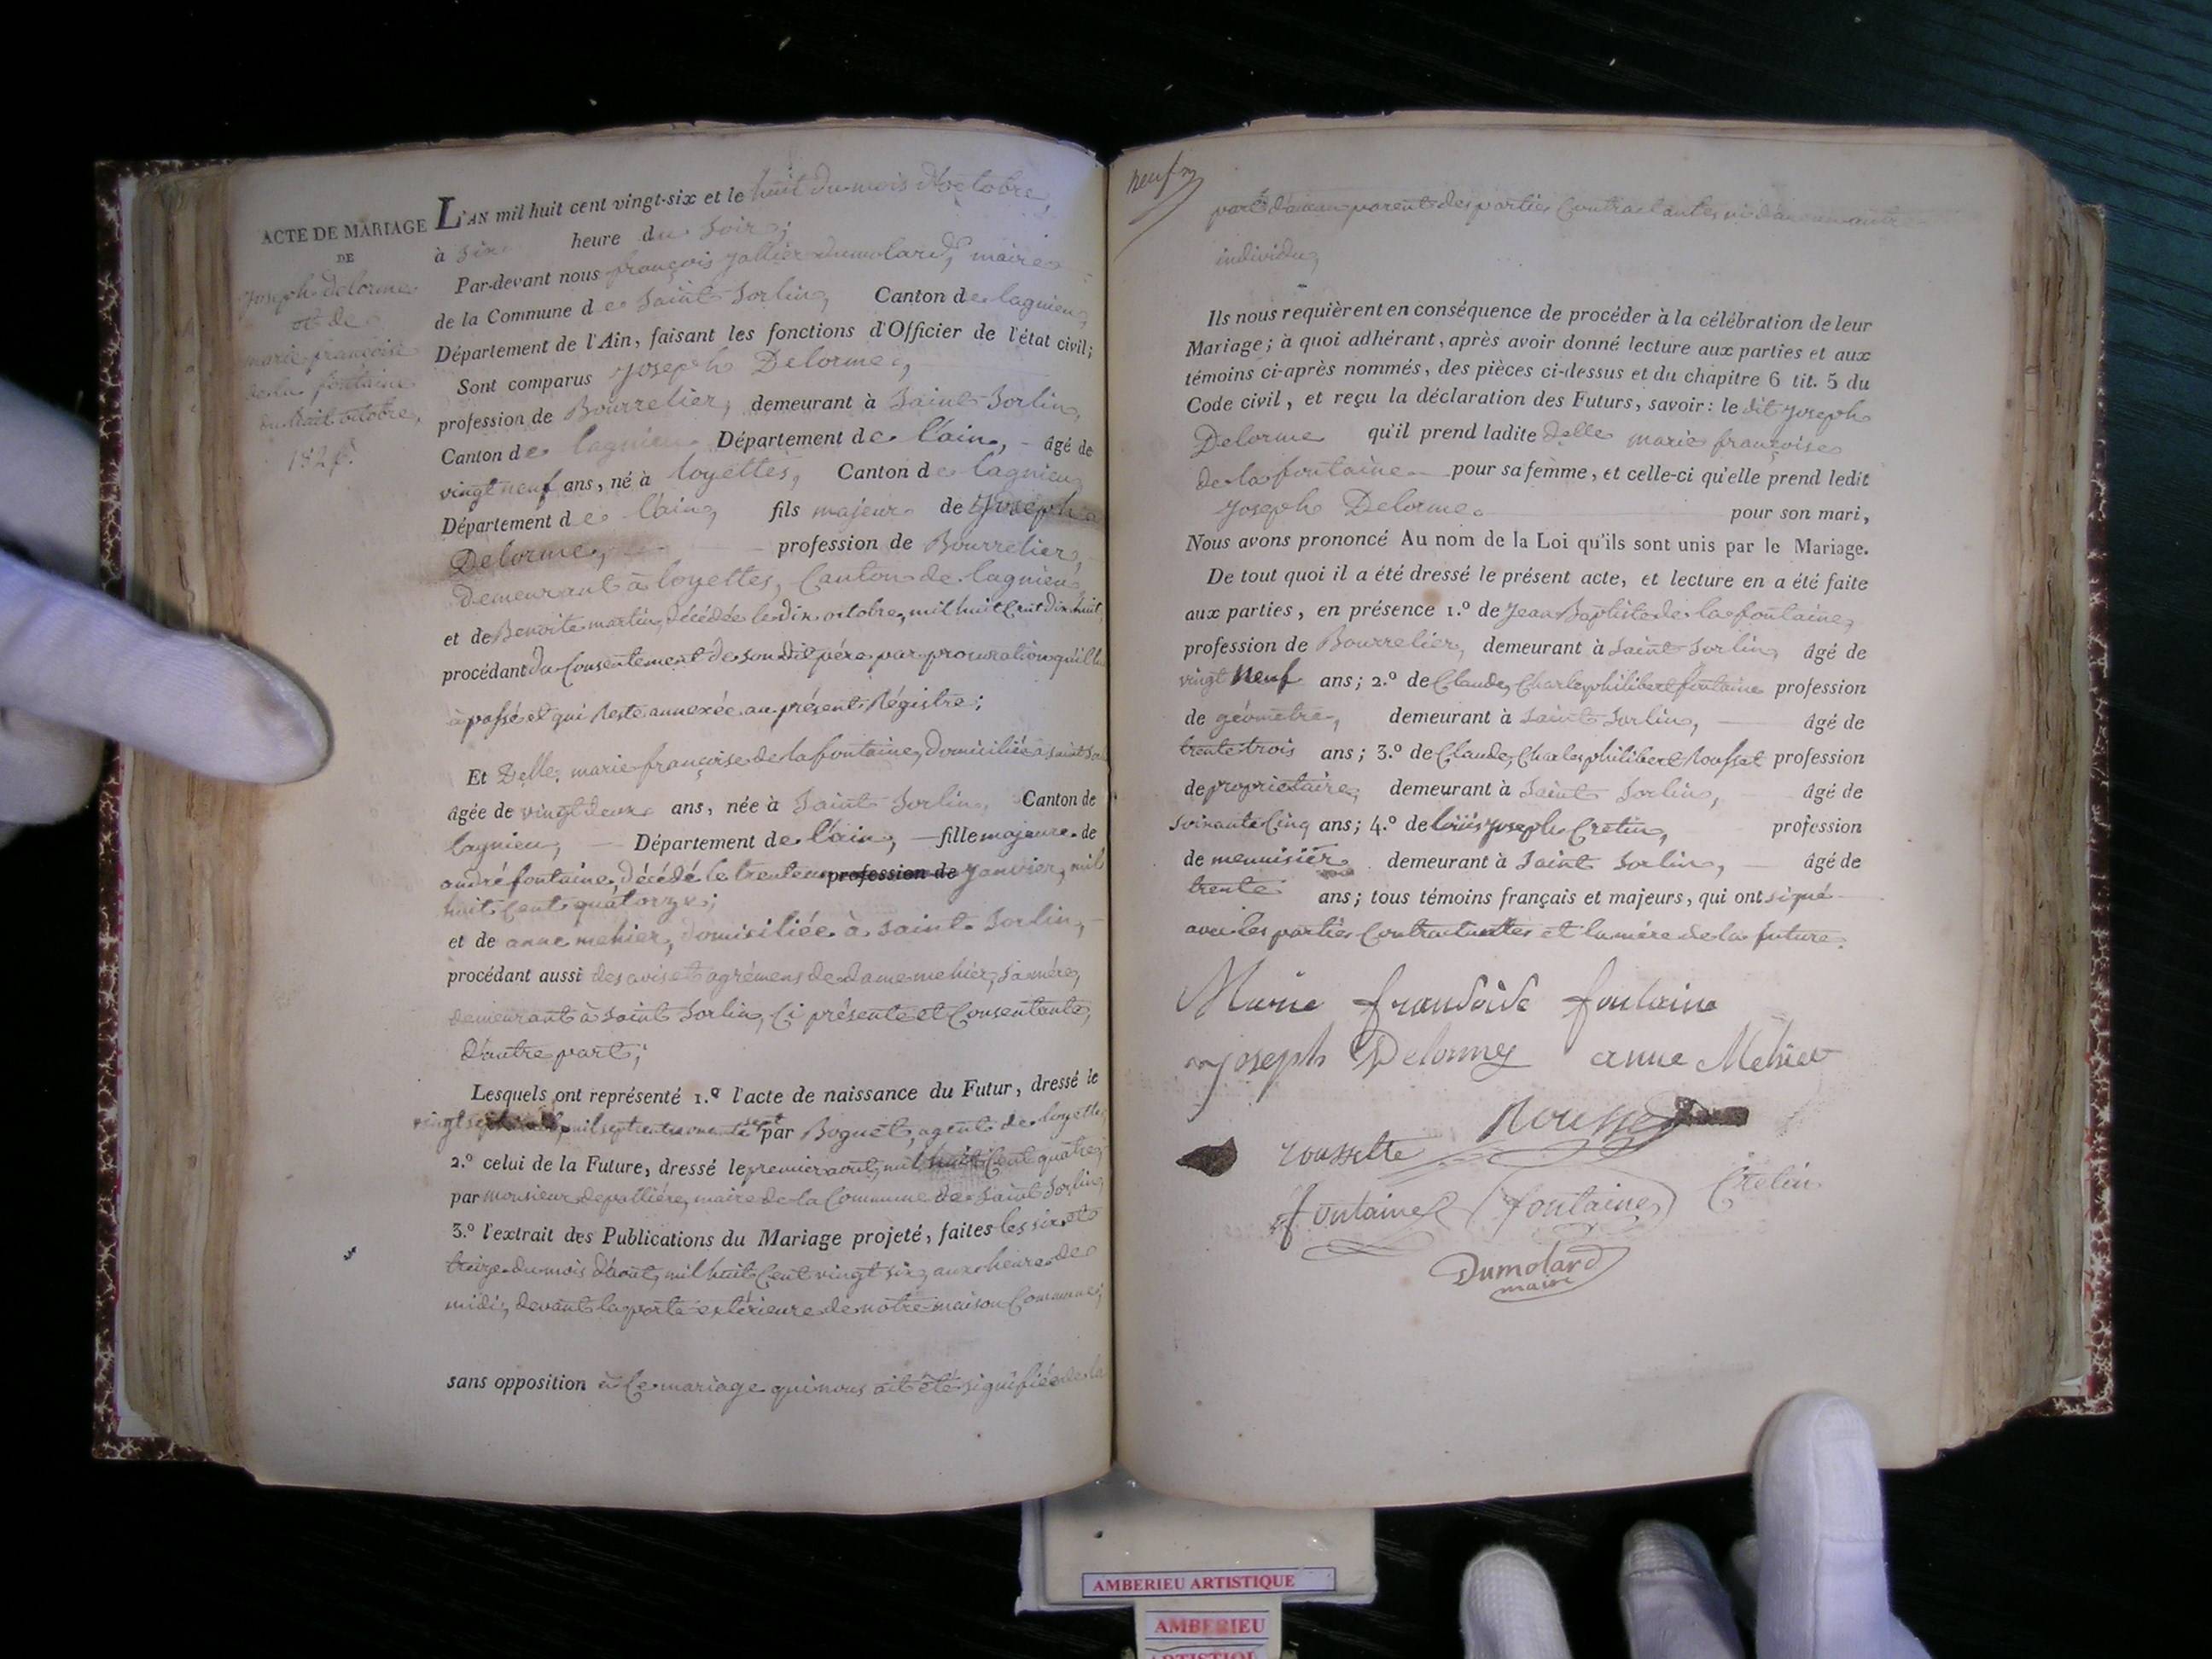 ACTE DE MARIAGE
DE
Joseph delorme
et de
marie françoise
de la fontaine
du huit octobre,
182
L'AN mil huit cent vingt-six et le huit du mois d'octobre,
à six heure du soir;
Par-devant nous françois jallier dumolard, maire
de la Commune de Saint Sorlin, Canton de lagnieu,
Département de l'Ain, faisant les fonctions d'Officier de l'état civil;
Sont comparus Joseph Delorme,
profession de Bourrelier, demeurant à Saint Sorlin,
Canton de lagnieu Département de l'ain, - âgé de
vingt neuf ans, né à loyettes, Canton de lagnieu
Département de l'ain, fils majeur de Joseph
Delorme, profession de Bourrelier,
demeurant à loyettes, Canton de lagnieu,
et de Benoite martin, décédée le dix octobre, mil huit Cent dix huit,
procédant du Consentement de son dit père par procuration qu'il
à passé et qui Reste annexée au présent Régistre;
Et Delle marie françoise de la fontaine, domiciliée à saint
âgée de vingt deux ans, née à Saint Sorlin, Canton de
lagnieu, — Département de l'ain, — fille majeure de
andré fontaine, décédé le trente un profession de Janvier, mil
huit Cent quatorze;
et de anne mehier, domiciliée à saint Sorlin, -
procédant aussi des avis et agrémens de dame mehier, sa mère,
demeurant à Saint Sorlin, Ci présente et Consentante,
D'autre part;
Lesquels ont représenté 1.º l'acte de naissance du Futur, dressé le
mil sept cent sept par Boguet, agent de loyettes
2.º celui de la Future, dressé le premier aout, mil huit Cent quatre,
par monsieur depalliére, maire de la Commune de Saint Sorlin,
3.º l'extrait des Publications du Mariage projeté, faites les six et
treize du mois d'aout, mil huit Cent vingt six, aux heures de
midi, devant la porte extérieure de notre maison Commune;
sans opposition à Ce mariage qui nous ait été signifiée de la
neuf
part d'aucun parent des parties Contractantes ni d'aucun autre
individu,
Ils nous requièrent en conséquence de procéder à la célébration de leur
Mariage; à quoi adhérant, après avoir donné lecture aux parties et aux
témoins ci-après nommés, des pièces ci-dessus et du chapitre 6 tit. 5 du
Code civil, et reçu la déclaration des Futurs, savoir: le dit Joseph
Delorme qu'il prend ladite Delle marie françoise
de la fontaine pour sa femme, et celle-ci qu'elle prend ledit
Joseph Delorme pour son mari,
Nous avons prononcé Au nom de la Loi qu'ils sont unis par le Mariage.
De tout quoi il a été dressé le présent acte, et lecture en a été faite
aux parties, en présence 1.º de Jean Baptiste de la fontaine,
profession de Bourrelier, demeurant à Saint Sorlin, âgé de
vingt Neuf ans; 2.º de Claude, Charles philibert fontaine profession
de géomètre, demeurant à Saint Sorlin, âgé de
trente trois ans; 3.º de Claude, Charles philibert Rousset profession
de propriétaire, demeurant à Saint Sorlin, âgé de
soixante Cinq ans; 4.º de loüis Joseph Cretin, profession
de menuisier demeurant à Saint Sorlin, âgé de
trente ans; tous témoins français et majeurs, qui ont signé
avec les parties Contractantes et la mère de la future.
Marie fransoise fontaine
Joseph Delorme anne Mehier
Rousset
roussette
fontaine fontaine Cretin
Dumolard
maire
AMBERIEU ARTISTIQUE
AMBERIEU
ARTISTIQUE